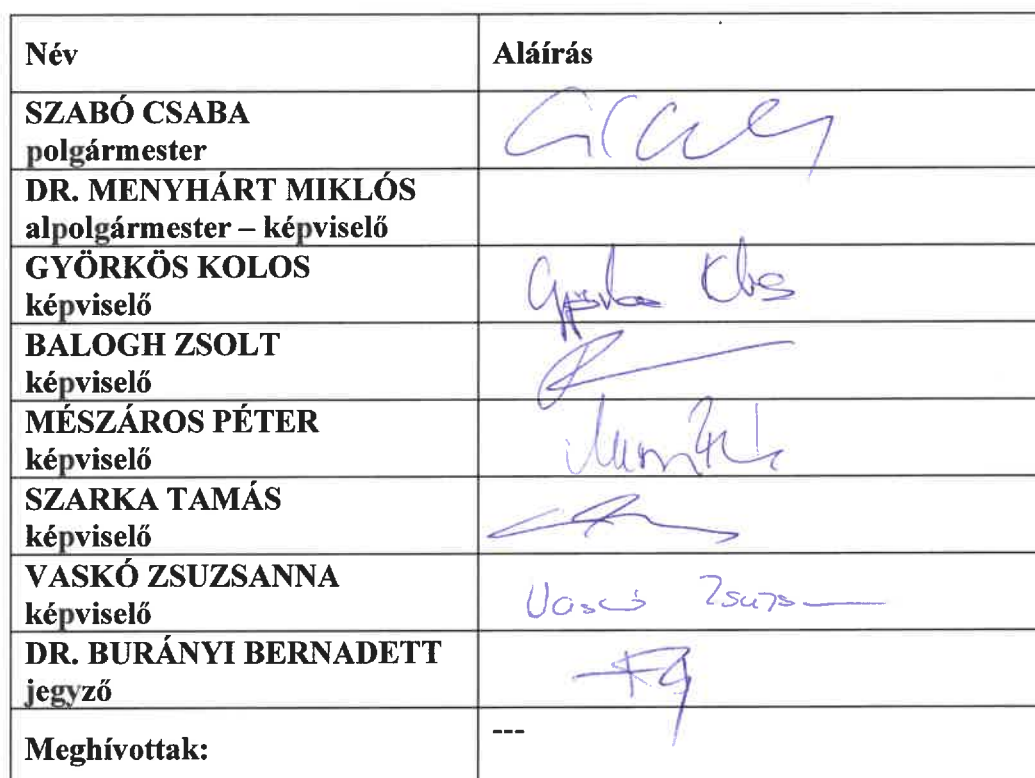 Név Aláírás
SZABÓ CSABA
polgármester
DR. MENYHÁRT MIKLÓS
alpolgármester – képviselő
GYÖRKÖS KOLOS
képviselő
BALOGH ZSOLT
képviselő
MÉSZÁROS PÉTER
képviselő
SZARKA TAMÁS
képviselő
VASKÓ ZSUZSANNA
képviselő
DR. BURÁNYI BERNADETT
jegyző
Meghívottak: ---